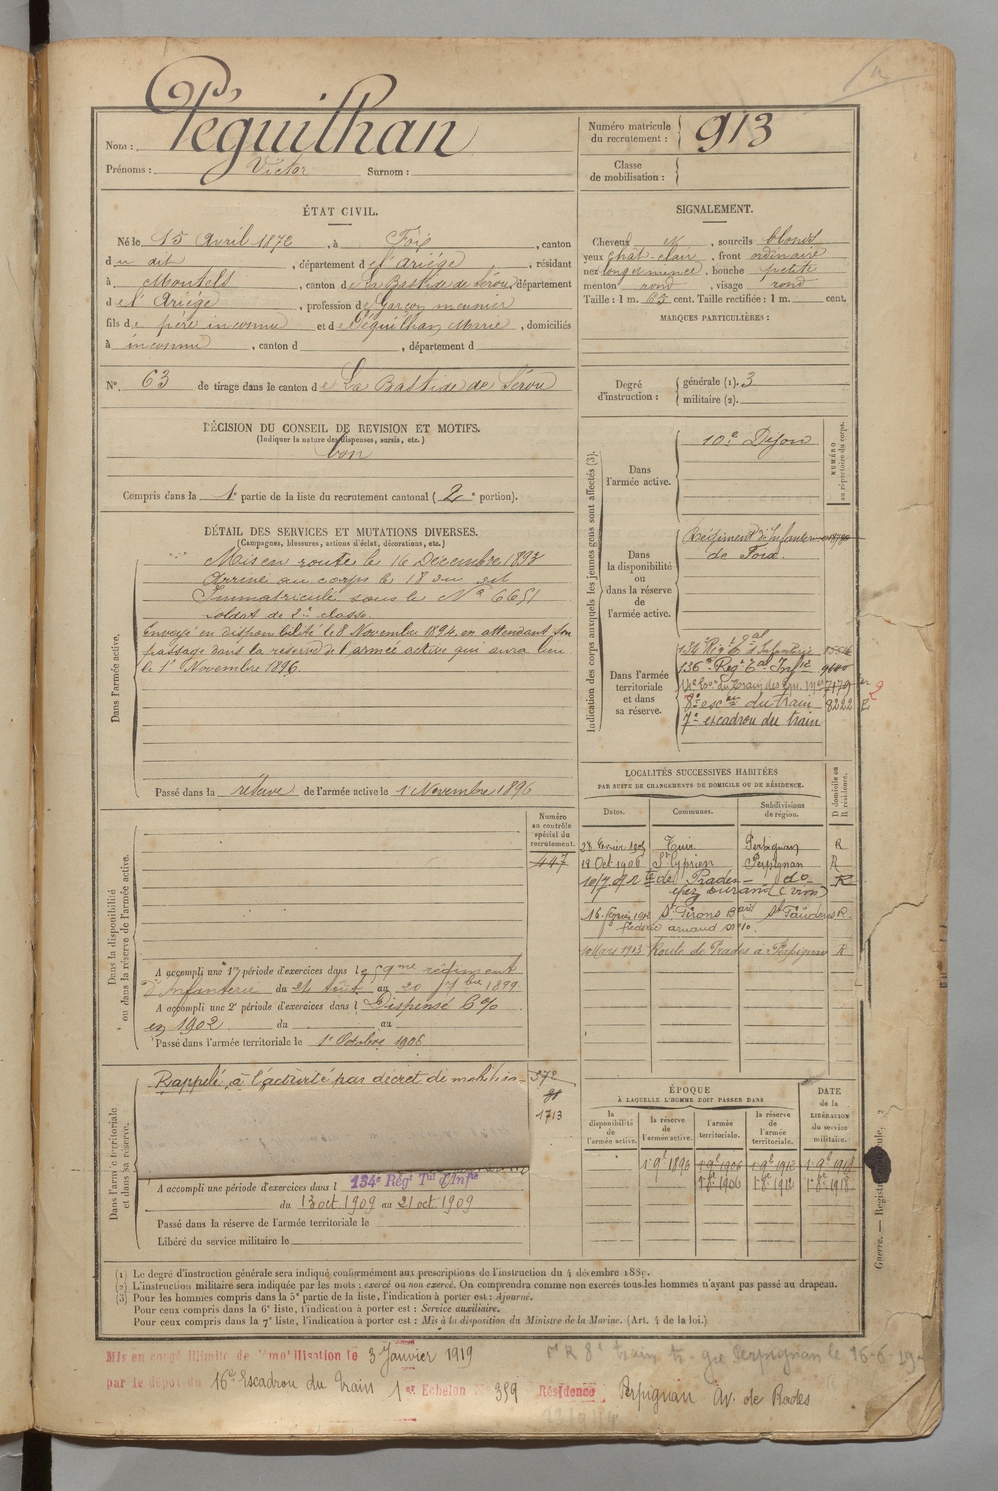 Nom : Péguilhan
Prénoms : Victor Surnom :
Numéro matricule du recrutement : 913
Classe de mobilisation :
ÉTAT CIVIL.
Né le 15 Avril 1872, à Foix, canton
du dit, département de l'Ariége, résidant
à Montels, canton de La Bastide de Sérou, département
de l'Ariége, profession de Garçon meunier
fils de père inconnu et de Péguilhan Marie, domiciliés
à inconnu, canton d , département d
N° 63 de tirage dans le canton de La Bastide de Sérou
SIGNALEMENT.
Cheveux , sourcils blonds
yeux chat-clair, front ordinaire
nez long et mince, bouche petite
menton rond, visage rond
Taille : 1 m. 65 cent. Taille rectifiée : 1 m. cent.
MARQUES PARTICULIÈRES :
Degré d'instruction : générale (1). 3
militaire (2).
DÉCISION DU CONSEIL DE REVISION ET MOTIFS.
(Indiquer la nature des dispenses, sursis, etc.)
bon
Compris dans la 1e partie de la liste du recrutement cantonal (2e portion).
DÉTAIL DES SERVICES ET MUTATIONS DIVERSES.
(Campagnes, blessures, actions d'éclat, décorations, etc.)
Dans l'armée active.
Mis en route le 16 Décembre 1893
Arrivé au corps le 18 du dit
Immatriculé sous le N° 6651
soldat de 2e classe.
Envoyé en disponibilité le 8 Novembre 1894, en attendant son
passage dans la réserve de l'armée active qui aura lieu
le 1er Novembre 1896.
Passé dans la réserve de l'armée active le 1er Novembre 1896
Indication des corps auxquels les jeunes gens sont affectés (3).
NUMÉRO au répertoire du corps.
Dans l'armée active.
10e Dijon
Dans la disponibilité ou dans la réserve de l'armée active.
Régiment d'Infanterie
de Foix.
Dans l'armée territoriale et dans sa réserve.
134e Rég. Tal d'Infanterie
136e Régt Tal Infie
7179
8e escon du train 8222
7e escadron du train
2
LOCALITÉS SUCCESSIVES HABITÉES
PAR SUITE DE CHANGEMENTS DE DOMICILE OU DE RÉSIDENCE.
D domicile ou R résidence.
Dates. Communes. Subdivisions de région.
28 février 1905 Thuir Perpignan R
18 Oct 1906 St Cyprien Perpignan R
Rte de Prades do R
chez Durand (vins)
16 février 1912 St Girons St Gaudens R
frédéric arnaud n° 10.
10 Mars 1913 Route de Prades à Perpignan R
Dans la disponibilité ou dans la réserve de l'armée active.
Numéro au contrôle spécial du recrutement.
447
A accompli une 1re période d'exercices dans le 59me régiment
d'Infanterie du 24 Août au 20 7bre 1899
A accompli une 2e période d'exercices dans l Dispensé 6%
en 1902 du au
Passé dans l'armée territoriale le 1er Octobre 1906
Dans l'armée territoriale et dans sa réserve.
Rappelé à l'activité par décret de mobilisa-
372
1713
A accompli une période d'exercices dans l 134e Régt Tal d'Infie
du 13 oct 1909 au 21 oct 1909
Passé dans la réserve de l'armée territoriale le
Libéré du service militaire le
ÉPOQUE
À LAQUELLE L'HOMME DOIT PASSER DANS
DATE de la LIBÉRATION du service militaire.
la disponibilité de l'armée active. la réserve de l'armée active. l'armée territoriale. la réserve de l'armée territoriale.
1er 9e 1896 1er 9e 1906 1er 9e 1912 1er 9e 1918
1er 8e 1906 1er 8e 1912 1er 8e 1918
(1) Le degré d'instruction générale sera indiqué conformément aux prescriptions de l'instruction du 4 décembre 1889.
(2) L'instruction militaire sera indiquée par les mots : exercé ou non exercé. On comprendra comme non exercés tous les hommes n'ayant pas passé au drapeau.
(3) Pour les hommes compris dans la 5e partie de la liste, l'indication à porter est : Ajourné.
Pour ceux compris dans la 6e liste, l'indication à porter est : Service auxiliaire.
Pour ceux compris dans la 7e liste, l'indication à porter est : Mis à la disposition du Ministre de la Marine. (Art. 4 de la loi.)
Guerre. — Registre
Mis en congé illimité de démobilisation le 3 Janvier 1919
par le dépôt du 16e Escadron du Train 1er Echelon N° 359 Résidence Perpignan Av. de Prades
8e train Perpignan le 16-6-19